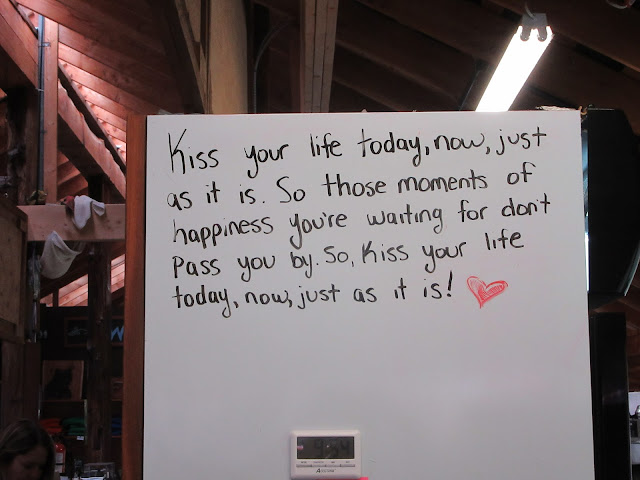 Kiss your life today, now, just
as it is. So those moments of
happiness you're waiting for don't
pass you by. So, Kiss your life
today, now, just as it is!